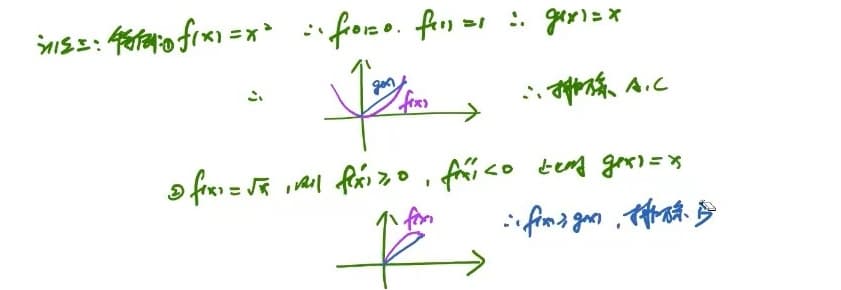 证法三: 特例:① f(x)=x² ∴ f(0)=0. f(1)=1 ∴ g(x)=x
∴ g(x) f(x) ∴ 排除 A.C
② f(x)=√x ,则 f'(x)≥0 , f''(x)<0 此时 g(x)=x
f(x) ∴ f(x)≥g(x) , 排除 B